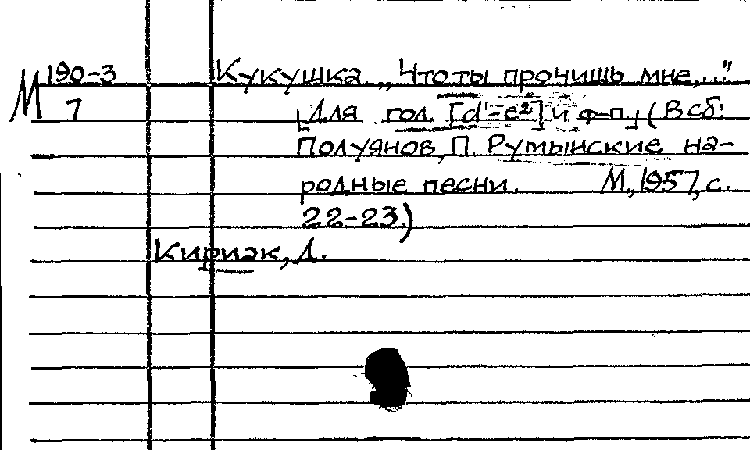 М 190-3 Кукушка. „Что ты прочишь мне,..."
7 [Для гол. [d¹-e²] и ф-п.] (В сб:
Полуянов, П. Румынские на-
родные песни. М., 1957, с.
22-23.)
Кириак, Д.